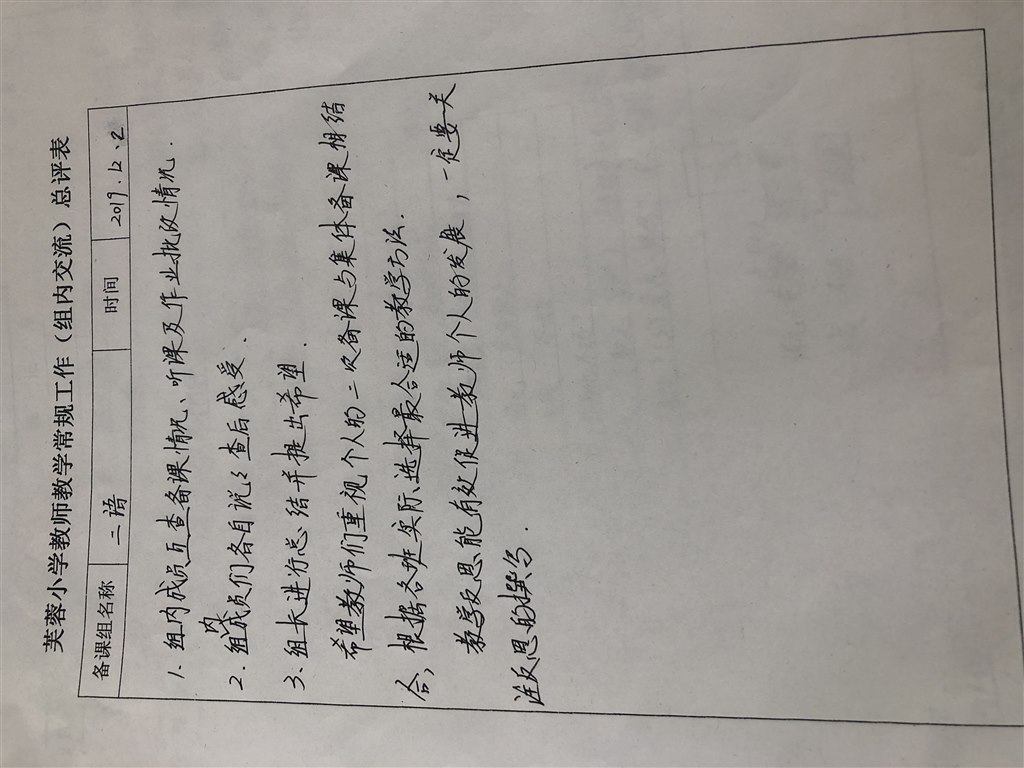 芙蓉小学教师教学常规工作（组内交流）总评表
备课组名称 二语 时间 2019.12.2
1、组内成员互查备课情况、听课及作业批改情况.
2、组内成员们各自说说查后感受.
3、组长进行总结并提出希望.
希望教师们重视个人的二次备课与集体备课相结
合，根据各班实际，选择最合适的教学方法.
教学反思能有效促进教师个人的发展，一定要关
注反思的撰写.